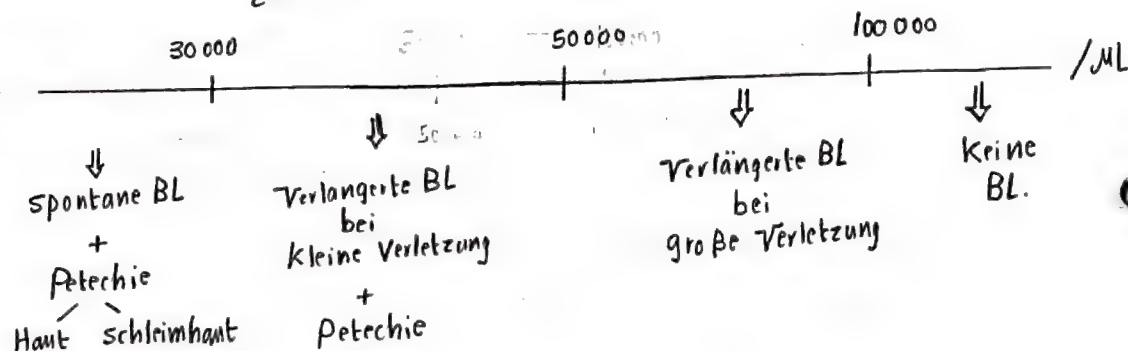 30 000
50 000
100 000
/ML
Spontane BL
+
Petechie
Haut Schleimhaut
Verlangerte BL
bei
kleine Verletzung
+
Petechie
Verlängerte BL
bei
große Verletzung
Keine
BL.